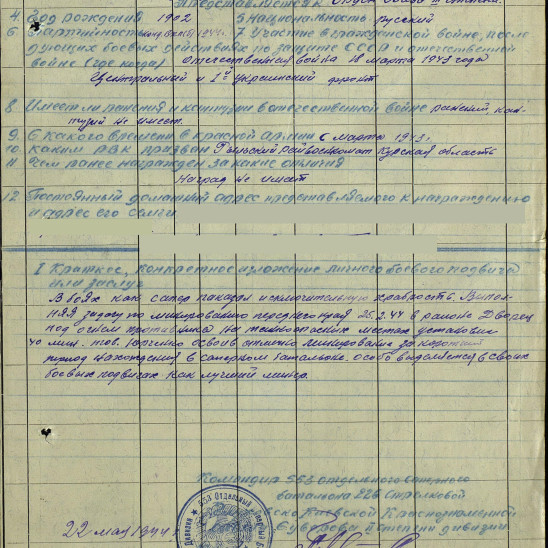 Представляется к Орден Слава III степени.
4. Год рождения 1902 5. Национальность русский
6 Партийность канд. ВКП(б) 1944 г. 7 Участие в гражданской войне, после
дующих боевых действиях по защите СССР и отечественной
войне (где когда) отечественная война 18 марта 1943 года
Центральный и 1й украинский фронт
8. Имеет ли ранения и контузии в отечественной войне ранений, кон-
тузий не имеет.
9. С какого времени в красной армии с марта 1943 г.
10. Каким РВК призван Рыльский райвоенкомат Курская область
11 Чем ранее награжден за какие отличия
Наград не имеет
12. Постоянный домашний адрес представляемого к награждению
и адрес его семьи.
I Краткое, конкретное изложение личного боевого подвига
или заслуг
В боях как сапер показал исключительную храбрость. Выпол-
няя задачу по минированию переднего края 25.2.44 в районе Дворец
под огнем противника на танкоопасных местах установил
40 мин. тов. освоив отлично минирование за короткий
период нахождения в саперном батальоне. особо выделяется в своих
боевых подвигах как лучший минер.
Командир 553 отдельного саперного
батальона 226 Стрелковой
Киевской Краснознаменной
Суворова II степени дивизии.
22 мая 1944 г.
553 Отдельный Саперный
Дивизии